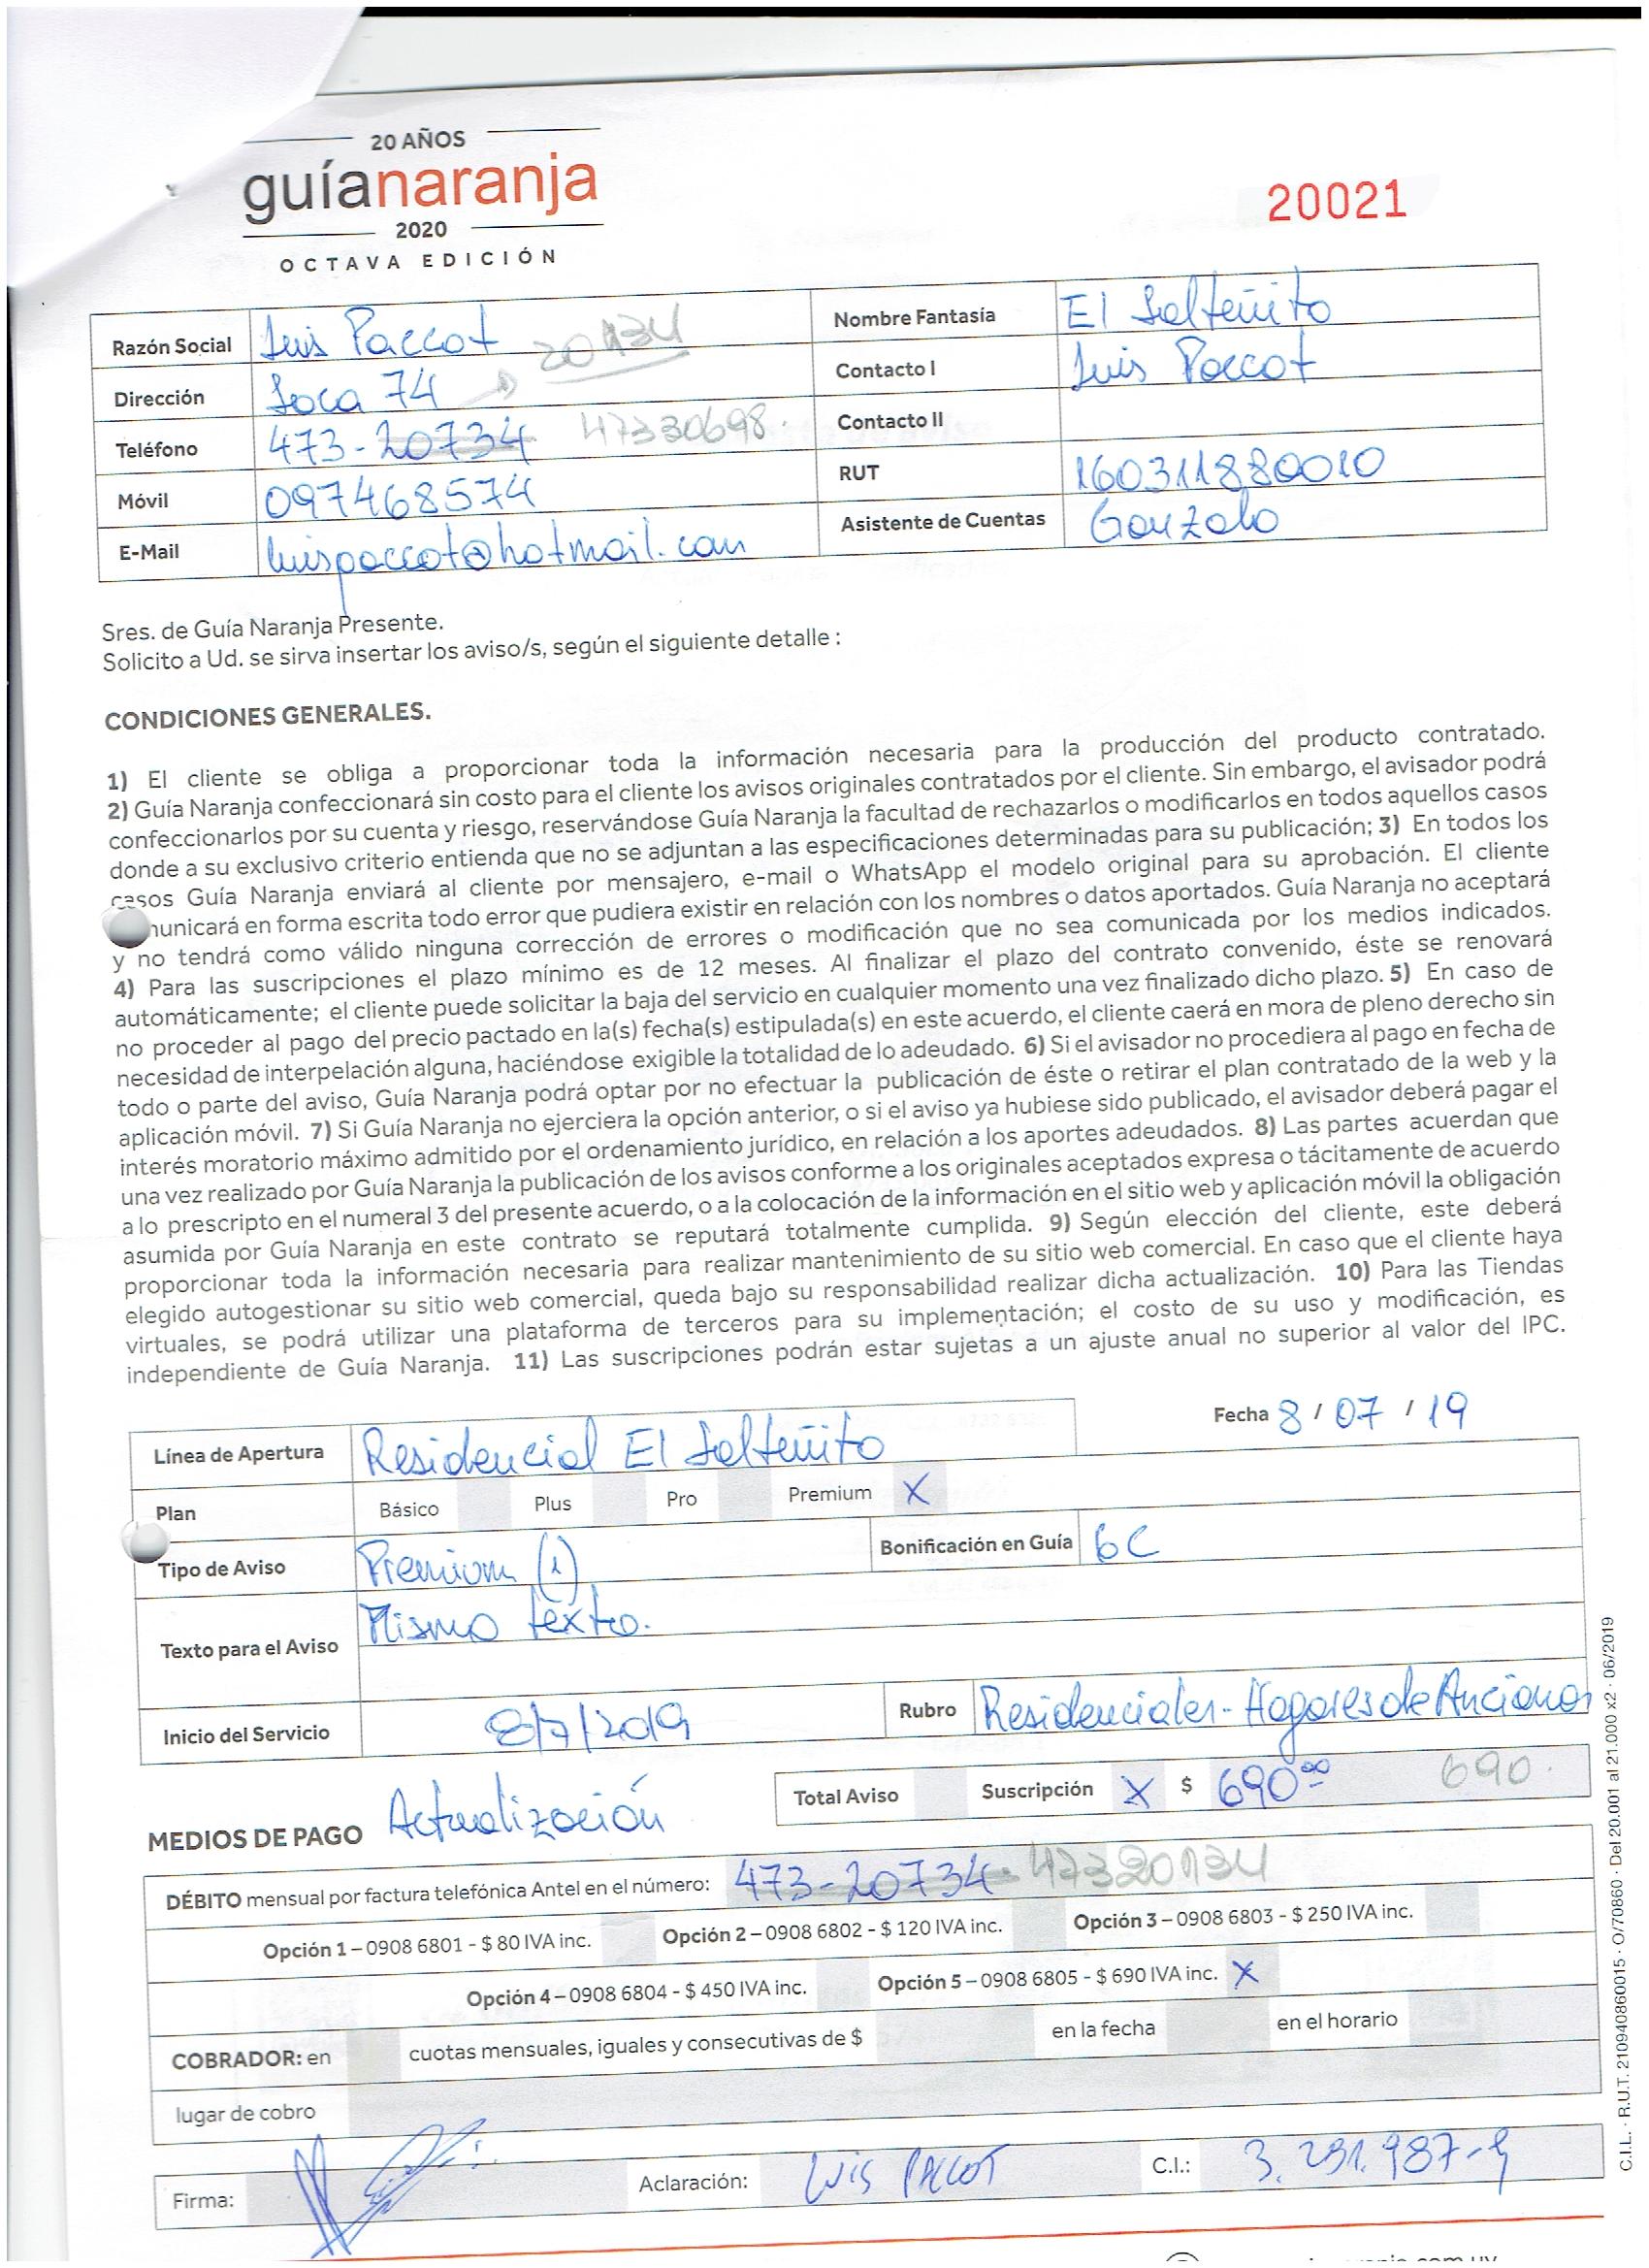 20 AÑOS
guíanaranja
2020
OCTAVA EDICIÓN
20021
Razón Social Luis Paccot 20134
Nombre Fantasía El Salteñito
Dirección Soca 74
Contacto I Luis Paccot
Teléfono 473-20734 47330698.
Contacto II
Móvil 097468574
RUT 160311880010
E-Mail luispaccot@hotmail.com
Asistente de Cuentas Gonzalo
Sres. de Guía Naranja Presente.
Solicito a Ud. se sirva insertar los aviso/s, según el siguiente detalle :
CONDICIONES GENERALES.
1) El cliente se obliga a proporcionar toda la información necesaria para la producción del producto contratado.
2) Guía Naranja confeccionará sin costo para el cliente los avisos originales contratados por el cliente. Sin embargo, el avisador podrá
confeccionarlos por su cuenta y riesgo, reservándose Guía Naranja la facultad de rechazarlos o modificarlos en todos aquellos casos
donde a su exclusivo criterio entienda que no se adjuntan a las especificaciones determinadas para su publicación; 3) En todos los
casos Guía Naranja enviará al cliente por mensajero, e-mail o WhatsApp el modelo original para su aprobación. El cliente
unicará en forma escrita todo error que pudiera existir en relación con los nombres o datos aportados. Guía Naranja no aceptará
y no tendrá como válido ninguna corrección de errores o modificación que no sea comunicada por los medios indicados.
4) Para las suscripciones el plazo mínimo es de 12 meses. Al finalizar el plazo del contrato convenido, éste se renovará
automáticamente; el cliente puede solicitar la baja del servicio en cualquier momento una vez finalizado dicho plazo. 5) En caso de
no proceder al pago del precio pactado en la(s) fecha(s) estipulada(s) en este acuerdo, el cliente caerá en mora de pleno derecho sin
necesidad de interpelación alguna, haciéndose exigible la totalidad de lo adeudado. 6) Si el avisador no procediera al pago en fecha de
todo o parte del aviso, Guía Naranja podrá optar por no efectuar la publicación de éste o retirar el plan contratado de la web y la
aplicación móvil. 7) Si Guía Naranja no ejerciera la opción anterior, o si el aviso ya hubiese sido publicado, el avisador deberá pagar el
interés moratorio máximo admitido por el ordenamiento jurídico, en relación a los aportes adeudados. 8) Las partes acuerdan que
una vez realizado por Guía Naranja la publicación de los avisos conforme a los originales aceptados expresa o tácitamente de acuerdo
a lo prescripto en el numeral 3 del presente acuerdo, o a la colocación de la información en el sitio web y aplicación móvil la obligación
asumida por Guía Naranja en este contrato se reputará totalmente cumplida. 9) Según elección del cliente, este deberá
proporcionar toda la información necesaria para realizar mantenimiento de su sitio web comercial. En caso que el cliente haya
elegido autogestionar su sitio web comercial, queda bajo su responsabilidad realizar dicha actualización. 10) Para las Tiendas
virtuales, se podrá utilizar una plataforma de terceros para su implementación; el costo de su uso y modificación, es
independiente de Guía Naranja. 11) Las suscripciones podrán estar sujetas a un ajuste anual no superior al valor del IPC.
Fecha 8 / 07 / 19
Línea de Apertura Residencial El Salteñito
Plan Básico Plus Pro Premium X
Tipo de Aviso Premium (1) Bonificación en Guía 6C
Texto para el Aviso Mismo texto.
Inicio del Servicio 8/7/2019 Rubro Residenciales - Hogares de Ancianos
Total Aviso Suscripción X $ 690⁰⁰ 690.
MEDIOS DE PAGO Actualización
DÉBITO mensual por factura telefónica Antel en el número: 473-20734 - 47320134
Opción 1 – 0908 6801 - $ 80 IVA inc. Opción 2 – 0908 6802 - $ 120 IVA inc. Opción 3 – 0908 6803 - $ 250 IVA inc.
Opción 4 – 0908 6804 - $ 450 IVA inc. Opción 5 – 0908 6805 - $ 690 IVA inc. X
COBRADOR: en cuotas mensuales, iguales y consecutivas de $ en la fecha en el horario
lugar de cobro
Firma: Aclaración: LUIS PACCOT C.I.: 3.291.987-9
C.I.L. · R.U.T. 210940860015 · O/70860 · Del 20.001 al 21.000 x2 · 06/2019